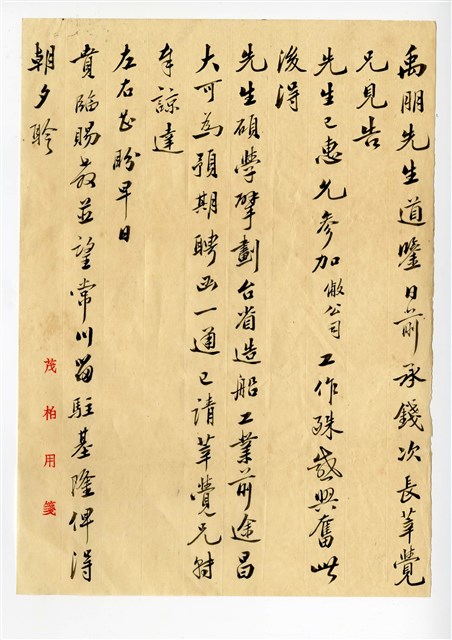 禹朋先生道鑒日前承錢次長莘覺
兄見告
先生已惠允參加敝公司工作殊感興奮此
後得
先生碩學擘劃台省造船工業前途昌
大可為預期聘函一通已請莘覺兄轉
奉諒達
左右甚盼早日
貴臨賜教並望常川留駐基隆俾得
朝夕聆
茂柏用箋